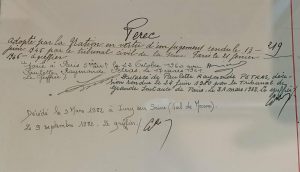 Perec
adopté par la Nation en vertu d'un jugement rendu le 13
juin 945 par le tribunal civil de la Seine. Paris le 21 janvier
1956 - le greffier
219
Marié à Paris 5e le 22 Octobre 1960 avec
Paulette Raymonde Pétras
Le greffier
Divorcé de Paulette Raymonde PETRAS, déci-
sion rendue le 24 juin 1980 par le Tribunal de
Grande Instance de Paris. le 21 mars 1982. Le greffier
Décédé le 3 Mars 1982 à Ivry sur Seine (Val de Marne).
Le 9 septembre 1982. Le greffier